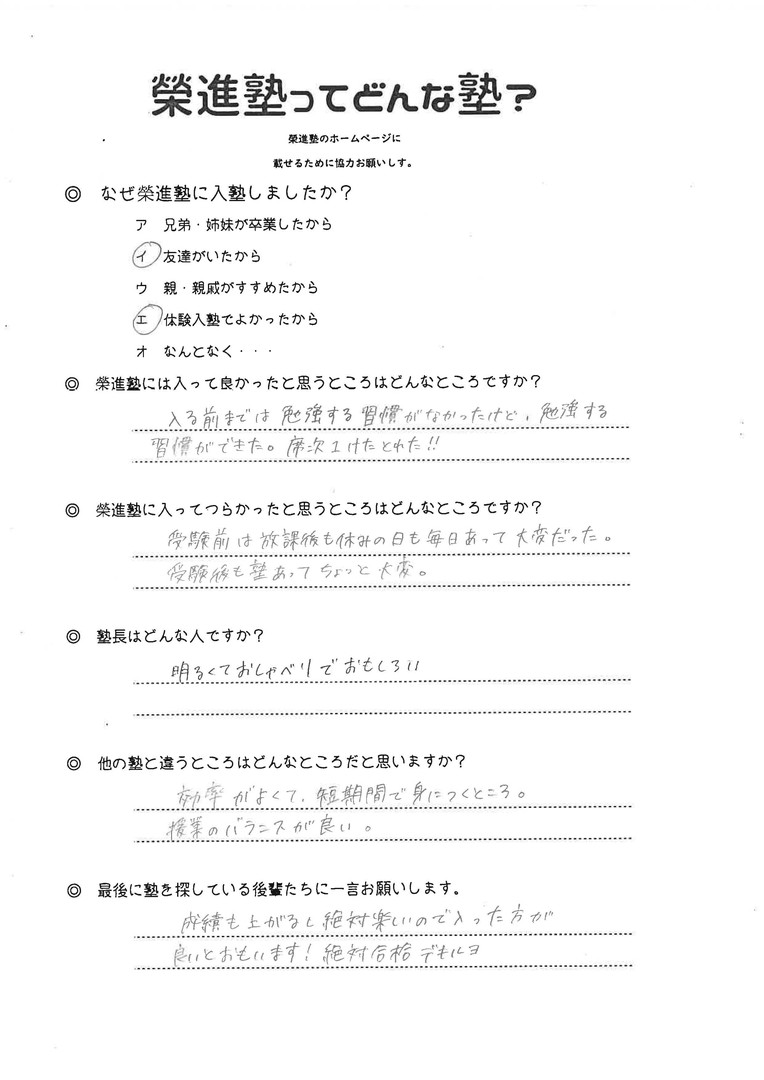 榮進塾ってどんな塾？
榮進塾のホームページに
載せるために協力お願いしす。
◎ なぜ榮進塾に入塾しましたか？
ア 兄弟・姉妹が卒業したから
イ 友達がいたから
ウ 親・親戚がすすめたから
エ 体験入塾でよかったから
オ なんとなく・・・
◎ 榮進塾には入って良かったと思うところはどんなところですか？
入る前までは勉強する習慣がなかったけど、勉強する
習慣ができた。席次1けたとれた!!
◎ 榮進塾に入ってつらかったと思うところはどんなところですか？
受験前は放課後も休みの日も毎日あって大変だった。
受験後も塾あってちょっと大変。
◎ 塾長はどんな人ですか？
明るくておしゃべりでおもしろい
◎ 他の塾と違うところはどんなところだと思いますか？
効率がよくて、短期間で身につくところ。
授業のバランスが良い。
◎ 最後に塾を探している後輩たちに一言お願いします。
成績も上がるし絶対楽しいので入った方が
良いとおもいます！絶対合格デキルヨ